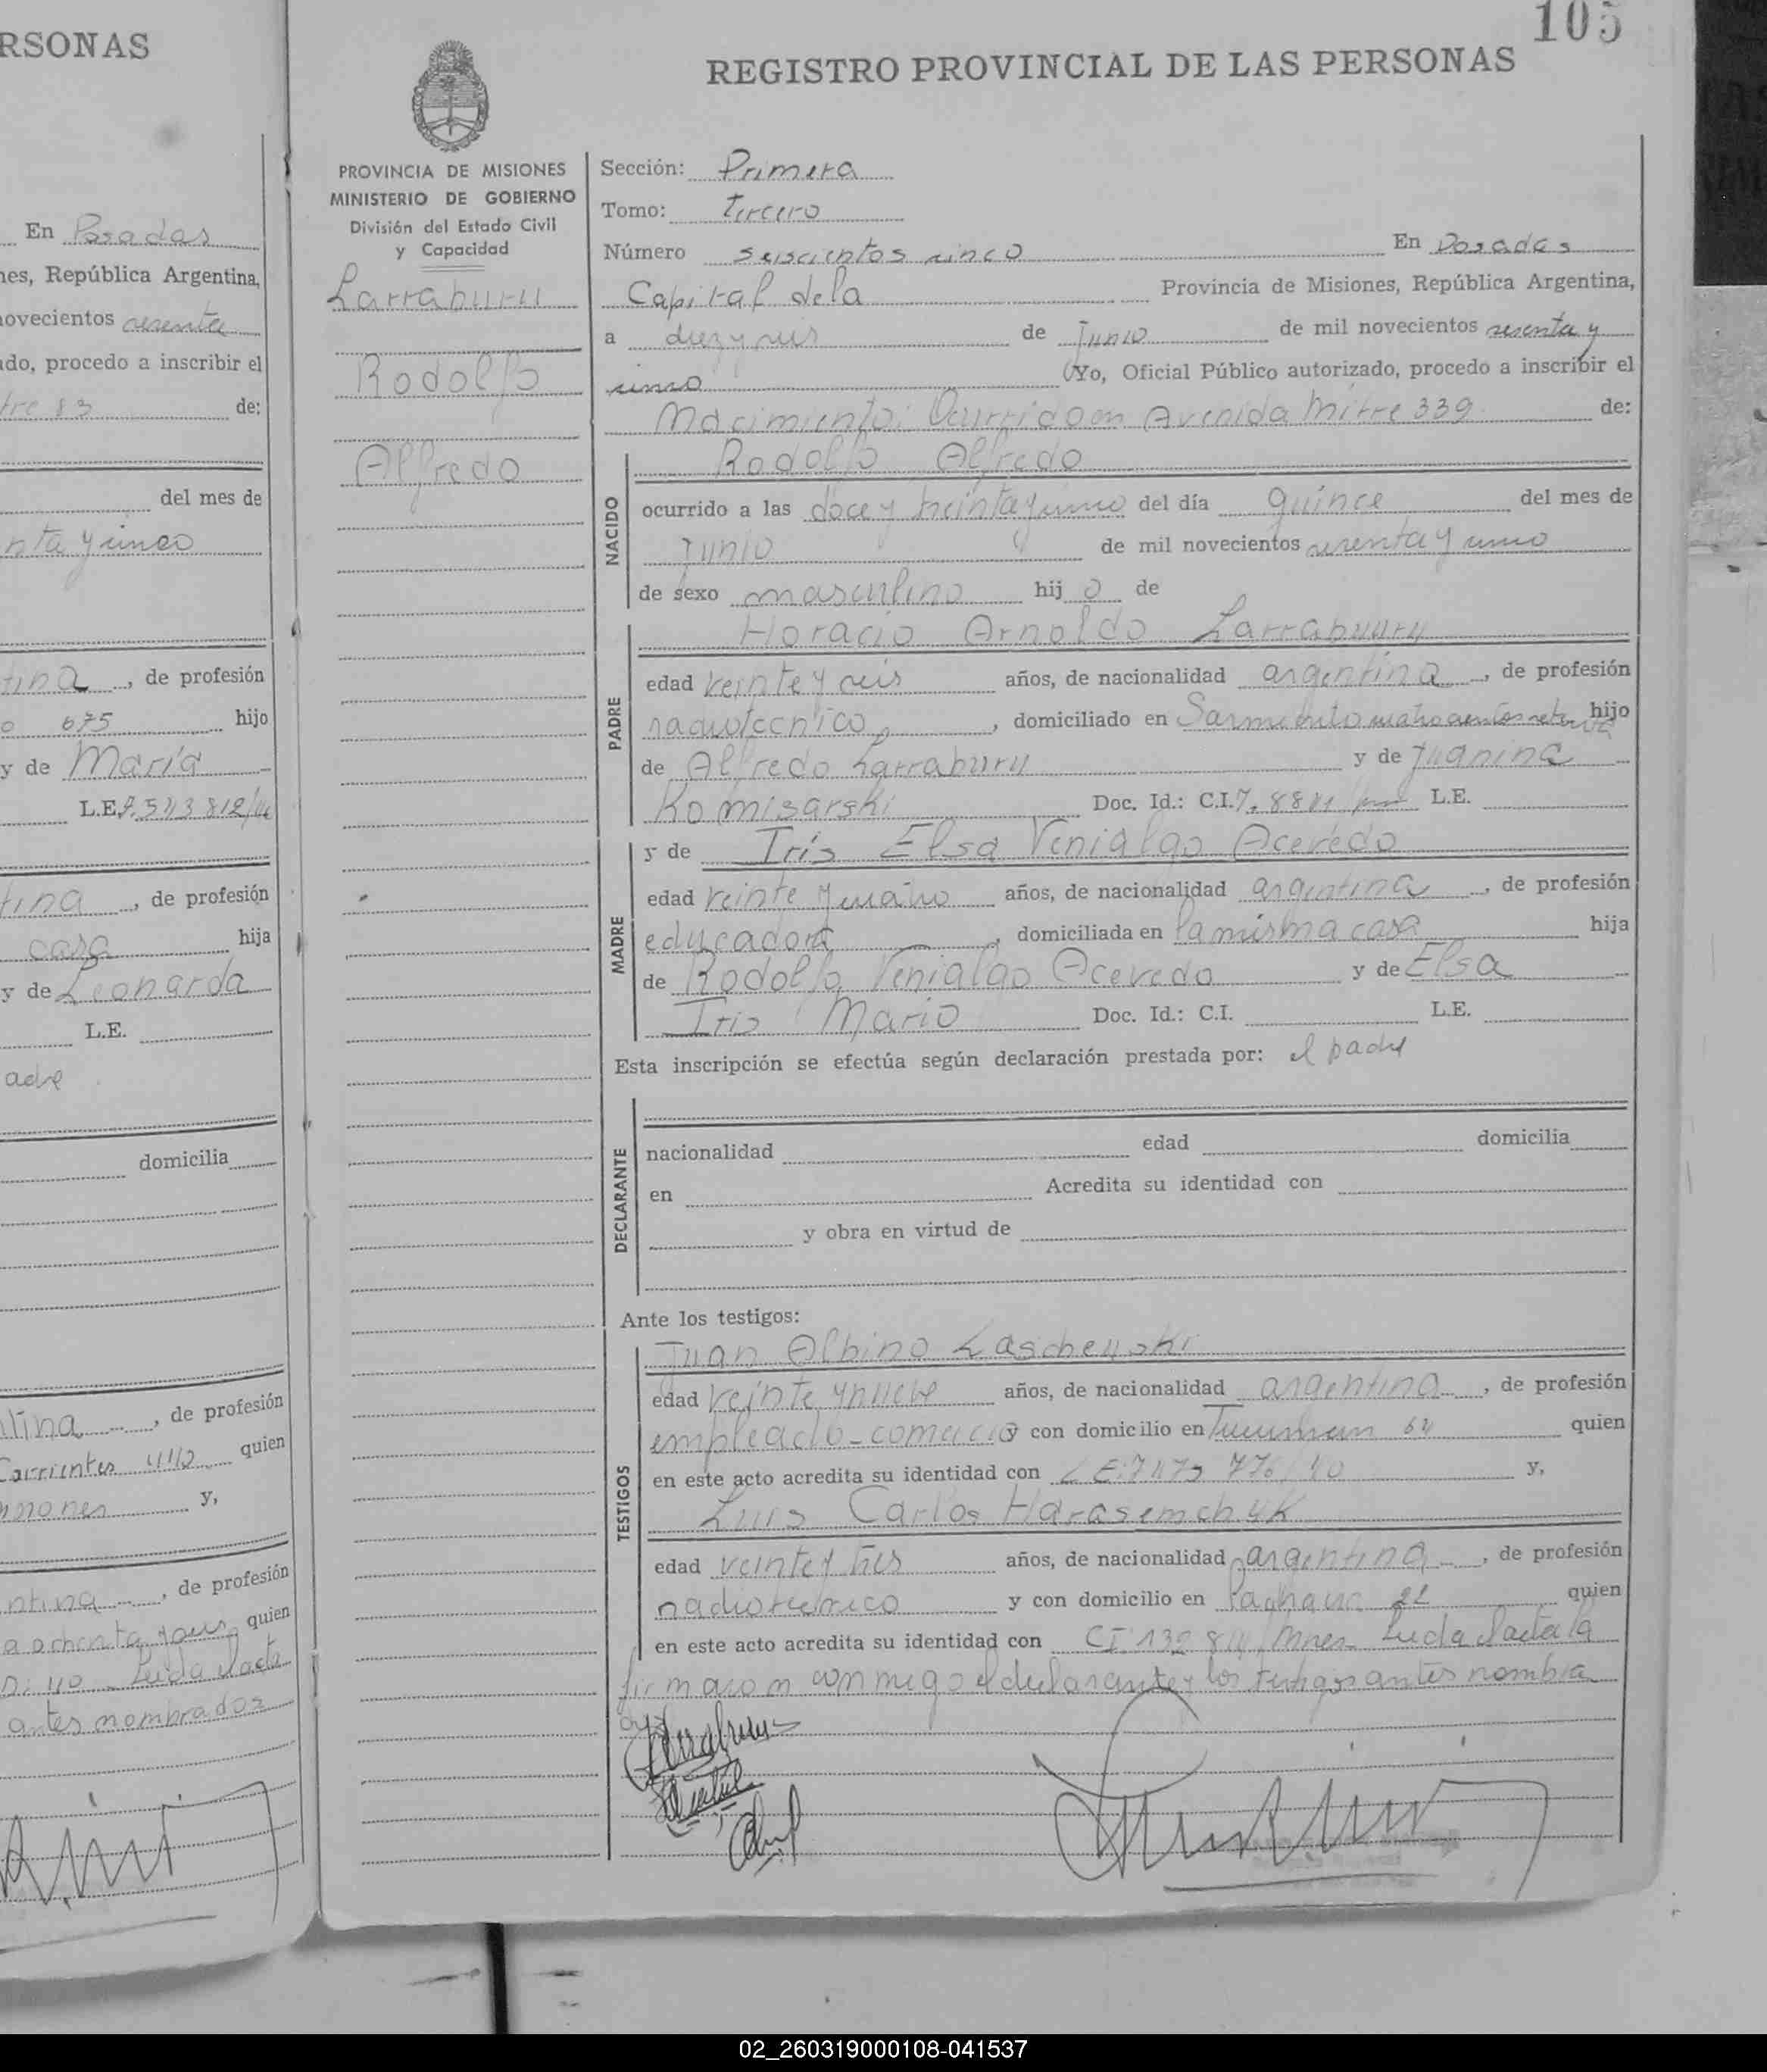 RSONAS
En Posadas
nes, República Argentina,
novecientos sesenta
ado, procedo a inscribir el
tre 83 de:
del mes de
nta y cinco
tina, de profesión
o 675 hijo
y de María
L.E.
tina, de profesión
casa hija
y de Leonarda
L.E.
adre
domicilia
tina, de profesión
Corrientes quien
y,
ntina, de profesión
quien
antes nombrados
105
REGISTRO PROVINCIAL DE LAS PERSONAS
PROVINCIA DE MISIONES
MINISTERIO DE GOBIERNO
División del Estado Civil
y Capacidad
Larraburu
Rodolfo
Alfredo
Sección: Primera
Tomo: tercero
Número seiscientos cinco En Posadas
Capital de la Provincia de Misiones, República Argentina,
a diez y seis de Junio de mil novecientos sesenta y
cinco Yo, Oficial Público autorizado, procedo a inscribir el
Nacimiento: Ocurrido en Avenida Mitre 339 de:
NACIDO
Rodolfo Alfredo
ocurrido a las doce y treinta y cinco del día quince del mes de
Junio de mil novecientos sesenta y cinco
de sexo masculino hij o de
PADRE
Horacio Arnoldo Larraburu
edad veinte y seis años, de nacionalidad argentina, de profesión
radiotecnico, domiciliado en Sarmiento hijo
de Alfredo Larraburu y de Juanina
Komisarski Doc. Id.: C.I. L.E.
MADRE
y de Iris Elsa Venialgo Acevedo
edad veinte y cuatro años, de nacionalidad argentina, de profesión
educadora, domiciliada en la misma casa hija
de Rodolfo Venialgo Acevedo y de Elsa
Iris Mario Doc. Id.: C.I. L.E.
Esta inscripción se efectúa según declaración prestada por: el padre
DECLARANTE
nacionalidad edad domicilia
en Acredita su identidad con
y obra en virtud de
Ante los testigos:
TESTIGOS
Juan Albino Laschewski
edad veinte y nueve años, de nacionalidad argentina, de profesión
empleado-comercio y con domicilio en Tucuman 64 quien
en este acto acredita su identidad con y,
Luis Carlos Harasemchuk
edad veinte y tres años, de nacionalidad argentina, de profesión
radiotecnico y con domicilio en quien
en este acto acredita su identidad con Leida el acta la
firmaron conmigo el declarante y los testigos antes nombra
dos
02_260319000108-041537